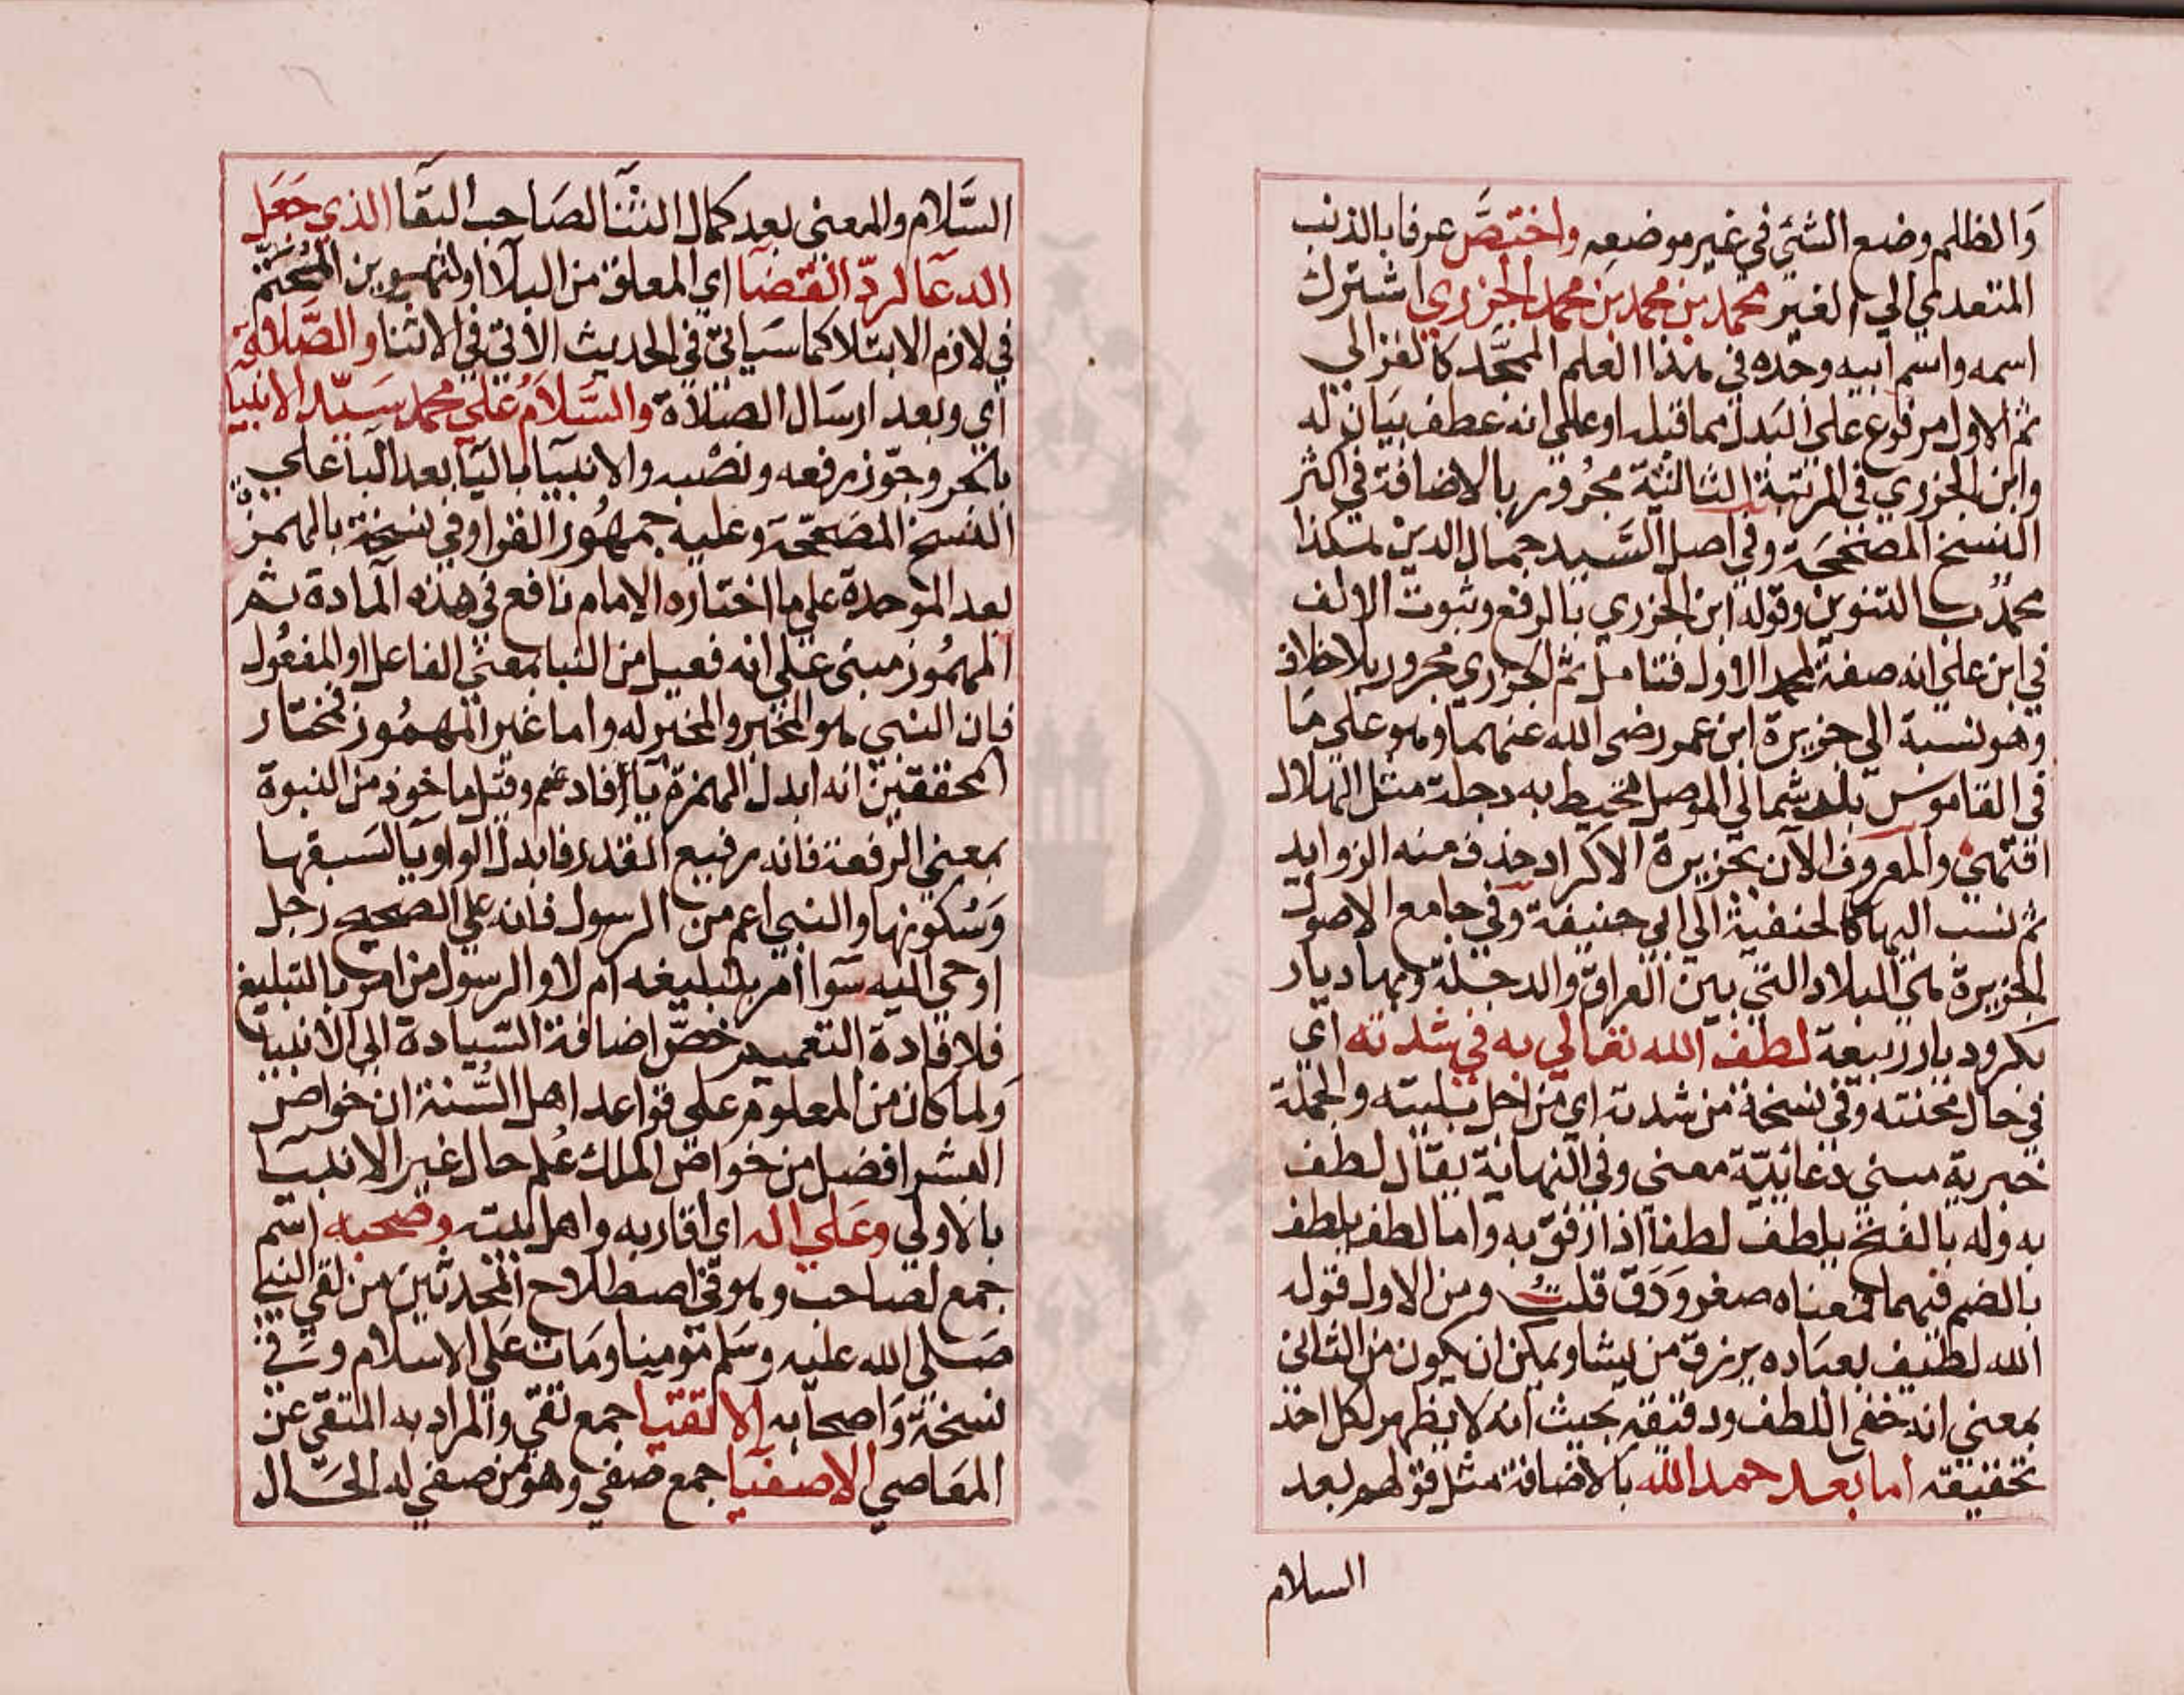 وَالظلم وضع الشئي في غير موضعه واختصَّ عرفا بالذنب
المتعدي الي الغير محمد بن محمد بن محمد الجزري اشترك
اسمه واسم ابيه وجده في هذا العلم الممجَّد كالغزالي
ثم الاول مرفوع علي البدل مما قبله او علي انه عطف بيان له
وابن الجزري في المرتبة الثالثة مجرور بالاضافة في اكثر
النسخ المصححة وفي اصل السَّيد جمال الدين هكذا
محمدٌ بالتنوين وقوله ابن الجزري بالرفع وثبوت الالف
في ابن علي انه صفة لمحمد الاول فتامل ثم الجزري مجرور بلاخلاف
وهو نسبة الي جزيرة ابن عمر رضي الله عنهما وهو علي مَا
في القاموس بلد شمالي الموصل تحيط به دجلة مثل الهلال
انتهي والمعروف الآن بجزيرة الاكراد حذف منه الزوايد
ثم نسب اليها كالحنفية الي ابي حنيفة وفي جامع الاصول
الجزيرة هي البلاد التي بين العراق والدجلة وبها ديار
بكر وديار ربيعة لطف الله تعالي به في شدته اي
في حال محنته وفي نسخة من شدته اي من اجل بليته والجملة
خبرية مبني دعائيّة معني وفي النهاية يقال لطف
به وله بالفتح يلطف لطفا اذا رفق به واما لطف يلطف
بالضم فيهما فمعناه صغر وَدَق قلتُ ومن الاول قوله
الله لطيف بعباده يرزق من يشا ويمكن ان يكون من الثاني
بمعني انه خفي اللطف ودقيقه بحيث انه لا يظهر لكل احد
تحقيقه اما بعد حمد الله بالاضافة مثل قولهم بعد
السلام
السَّلام والمعني بعد كمال الثنا لصَاحب البقا الذي جَعَل
الدعا لردّ القضآ اي المعلق من البلآ او لتهوين المُحَتَّم
في لازم الابتلا كما سَياتي في الحديث الآتي في الاثنا والصَّلاة
اي وبعد ارسال الصَلاة والسَّلامُ علي محمد سَيّد الانبيا
بالجر وجوّز رفعه ونصْبه والانبيا باليا بعد البا علي
النسخ المصَححة وعليه جمهُور القرا وفي نسخة بالهمزة
بعد الموحدة علي ما اختاره الامام نافع في هذه المادة ثم
المهمُوز مبني علي انه فعيل من النبا بمعني الفاعل او المفعُول
فان النبي هو المخبِر والمخبَر له واما غير المهمُوز فمختار
المحققين انه ابدل الهمزة ياً فادغم وقيل ماخوذ من النبوة
بمعني الرفعة فانه رفيع القدر فابدل الواو يا لسَبقها
وَسُكونها والنبي اعم من الرسول فانه علي الصحيح رجل
اوحي اليه سَوا امر بتبليغه ام لا والرسول من امر بالتبليغ
فلافادة التعميم خصَّ اضافة السّيادة الي الانبيا
وَلما كان من المعلوم علي قواعد اهل السُّنة ان خواص
البشر افضل من خواص الملك عُلم حال غير الانبيا
بالاولي وعَلي اله اي اقاربه واهل بيته وصحبه اسْم
جمع لصاحب وهو في اصطلاح المحدثين من لقي النبي
صَلي الله عليه وسَلم مومنا ومَات عَلي الاسلام وَفي
نسخة وَاصحابه الاتقيا جمع تقي والمراد به المتقي عن
المعَاصي الاصفيا جمع صفي وهو من صفي له الحَال